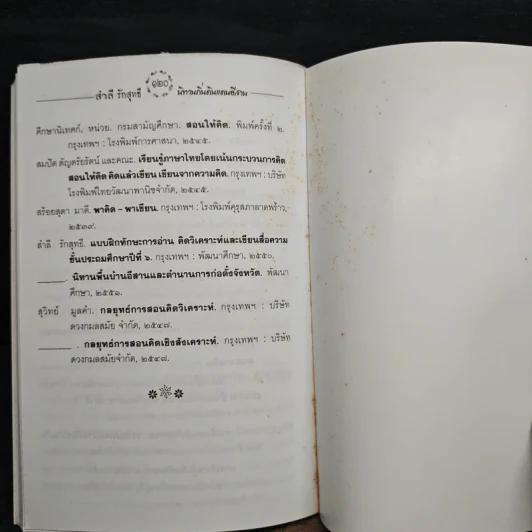 สำลี รักสุทธี ๑๒๐ นิทานถิ่นดินแดนอีสาน
ศึกษานิเทศก์, หน่วย. กรมสามัญศึกษา. สอนให้คิด. พิมพ์ครั้งที่ ๒.
กรุงเทพฯ : โรงพิมพ์การศาสนา, ๒๕๔๕.
สมปัต ตัญตรัยรัตน์ และคณะ. เรียนรู้ภาษาไทยโดยเน้นกระบวนการคิด
สอนให้คิด คิดแล้วเขียน เขียนจากความคิด. กรุงเทพฯ : บริษัท
โรงพิมพ์ไทยวัฒนาพานิชจำกัด, ๒๕๔๕.
สร้อยสุดา มาดี. พาคิด - พาเขียน. กรุงเทพฯ : โรงพิมพ์คุรุสภาลาดพร้าว,
๒๕๓๙.
สำลี รักสุทธี. แบบฝึกทักษะการอ่าน คิดวิเคราะห์และเขียนสื่อความ
ชั้นประถมศึกษาปีที่ ๖. กรุงเทพฯ : พัฒนาศึกษา, ๒๕๕๐.
______. นิทานพื้นบ้านอีสานและตำนานการก่อตั้งจังหวัด. พัฒนา
ศึกษา, ๒๕๕๑.
สุวิทย์ มูลคำ. กลยุทธ์การสอนคิดวิเคราะห์. กรุงเทพฯ : บริษัท
ดวงกมลสมัย จำกัด, ๒๕๔๗.
______. กลยุทธ์การสอนคิดเชิงสังเคราะห์. กรุงเทพฯ : บริษัท
ดวงกมลสมัยจำกัด, ๒๕๔๗.